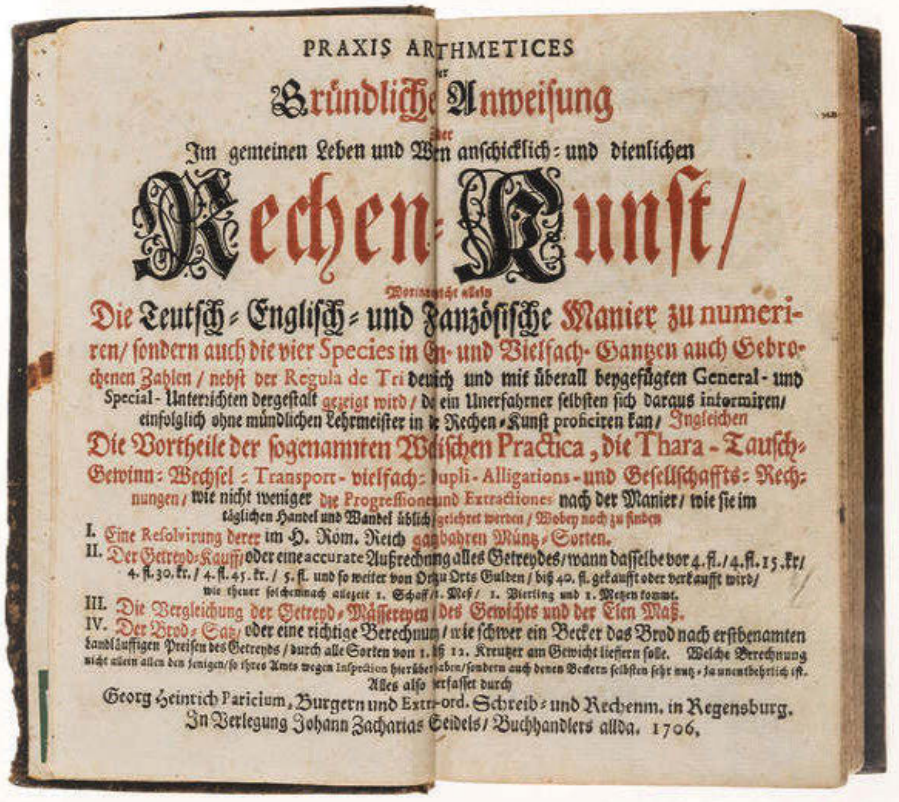 PRAXIS ARTHMETICES
der
Gründliche Anweisung
der
Im gemeinen Leben und anschicklich- und dienlichen
Rechen-Kunst/
allein
Die Teutsch-Englisch- und Fanzösische Manier zu numeri-
ren/ sondern auch die vier Species in und Vielfach-Gantzen auch Gebro-
chenen Zahlen/ nebst der Regula de Tri und mit überall beygefügten General- und
Special-Unterrichten dergestalt gezeigt wird/ ein Unerfahrner selbsten sich daraus informiren/
einfolglich ohne mündlichen Lehrmeister in Rechen-Kunst proficiren kan/ Ingleichen
Die Vortheile der sogenannten Practica, die Thara-Tausch-
Gewinn-Wechsel-Transport-vielfach- Alligations- und Gesellschaffts-Rech-
nungen/ wie nicht weniger die Progressiones und Extractiones nach der Manier/ wie sie im
täglichen Handel und Wandel üblich/ gelehret werden/ Wobey noch zu finden
I. Eine Resolvirung derer im H. Röm. Reich gangbahren Müntz-Sorten.
II. Der Getreyd-Kauff/ oder eine accurate Außrechnung alles Getreydes/ wann dasselbe vor 4. fl./ 4. fl. 15. kr/
4. fl. 30. kr./ 4. fl. 45. kr./ 5. fl. und so weiter von Ort zu Orts Gulden/ biß 40. fl. gekaufft oder verkaufft wird/
wie theuer solchemnach allezeit 1. Schaff/ 1. Meß/ 1. Vierling und 1. Metzen kommt.
III. Die Vergleichung der Getreyd-Mässereyen/ des Gewichts und der Elen Maß.
IV. Der Brod-Satz/ oder eine richtige Berechnung/ wie schwer ein Becker das Brod nach erstbenamten
Landläuffigen Preisen des Getreyds/ durch alle Sorten von 1. biß 12. Kreutzer am Gewicht lieffern solle. Welche Berechnung
nicht allein allen den jenigen/ so ihres Amts wegen Inspection hierüber haben/ sondern auch denen Beckern selbsten sehr nutz- ja unentbehrlich ist.
Alles also verfasset durch
Georg Heinrich Paricium, Burgern und Extra-ord. Schreib- und Rechenm. in Regensburg.
In Verlegung Johann Zacharias Seidels/ Buchhandlers allda. 1706.